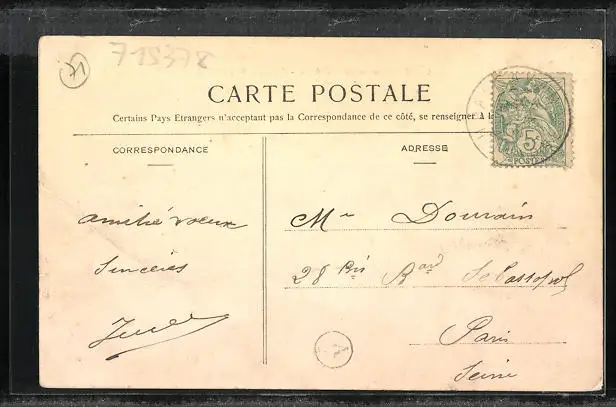 71
715378
CARTE POSTALE
Certains Pays Etrangers n'acceptant pas la Correspondance de ce côté, se renseigner à
CORRESPONDANCE
ADRESSE
5c
POSTES
amitié vœux
Sincères
Mr Dourain
28 bis Bard Sebastopol
Paris
Seine
A